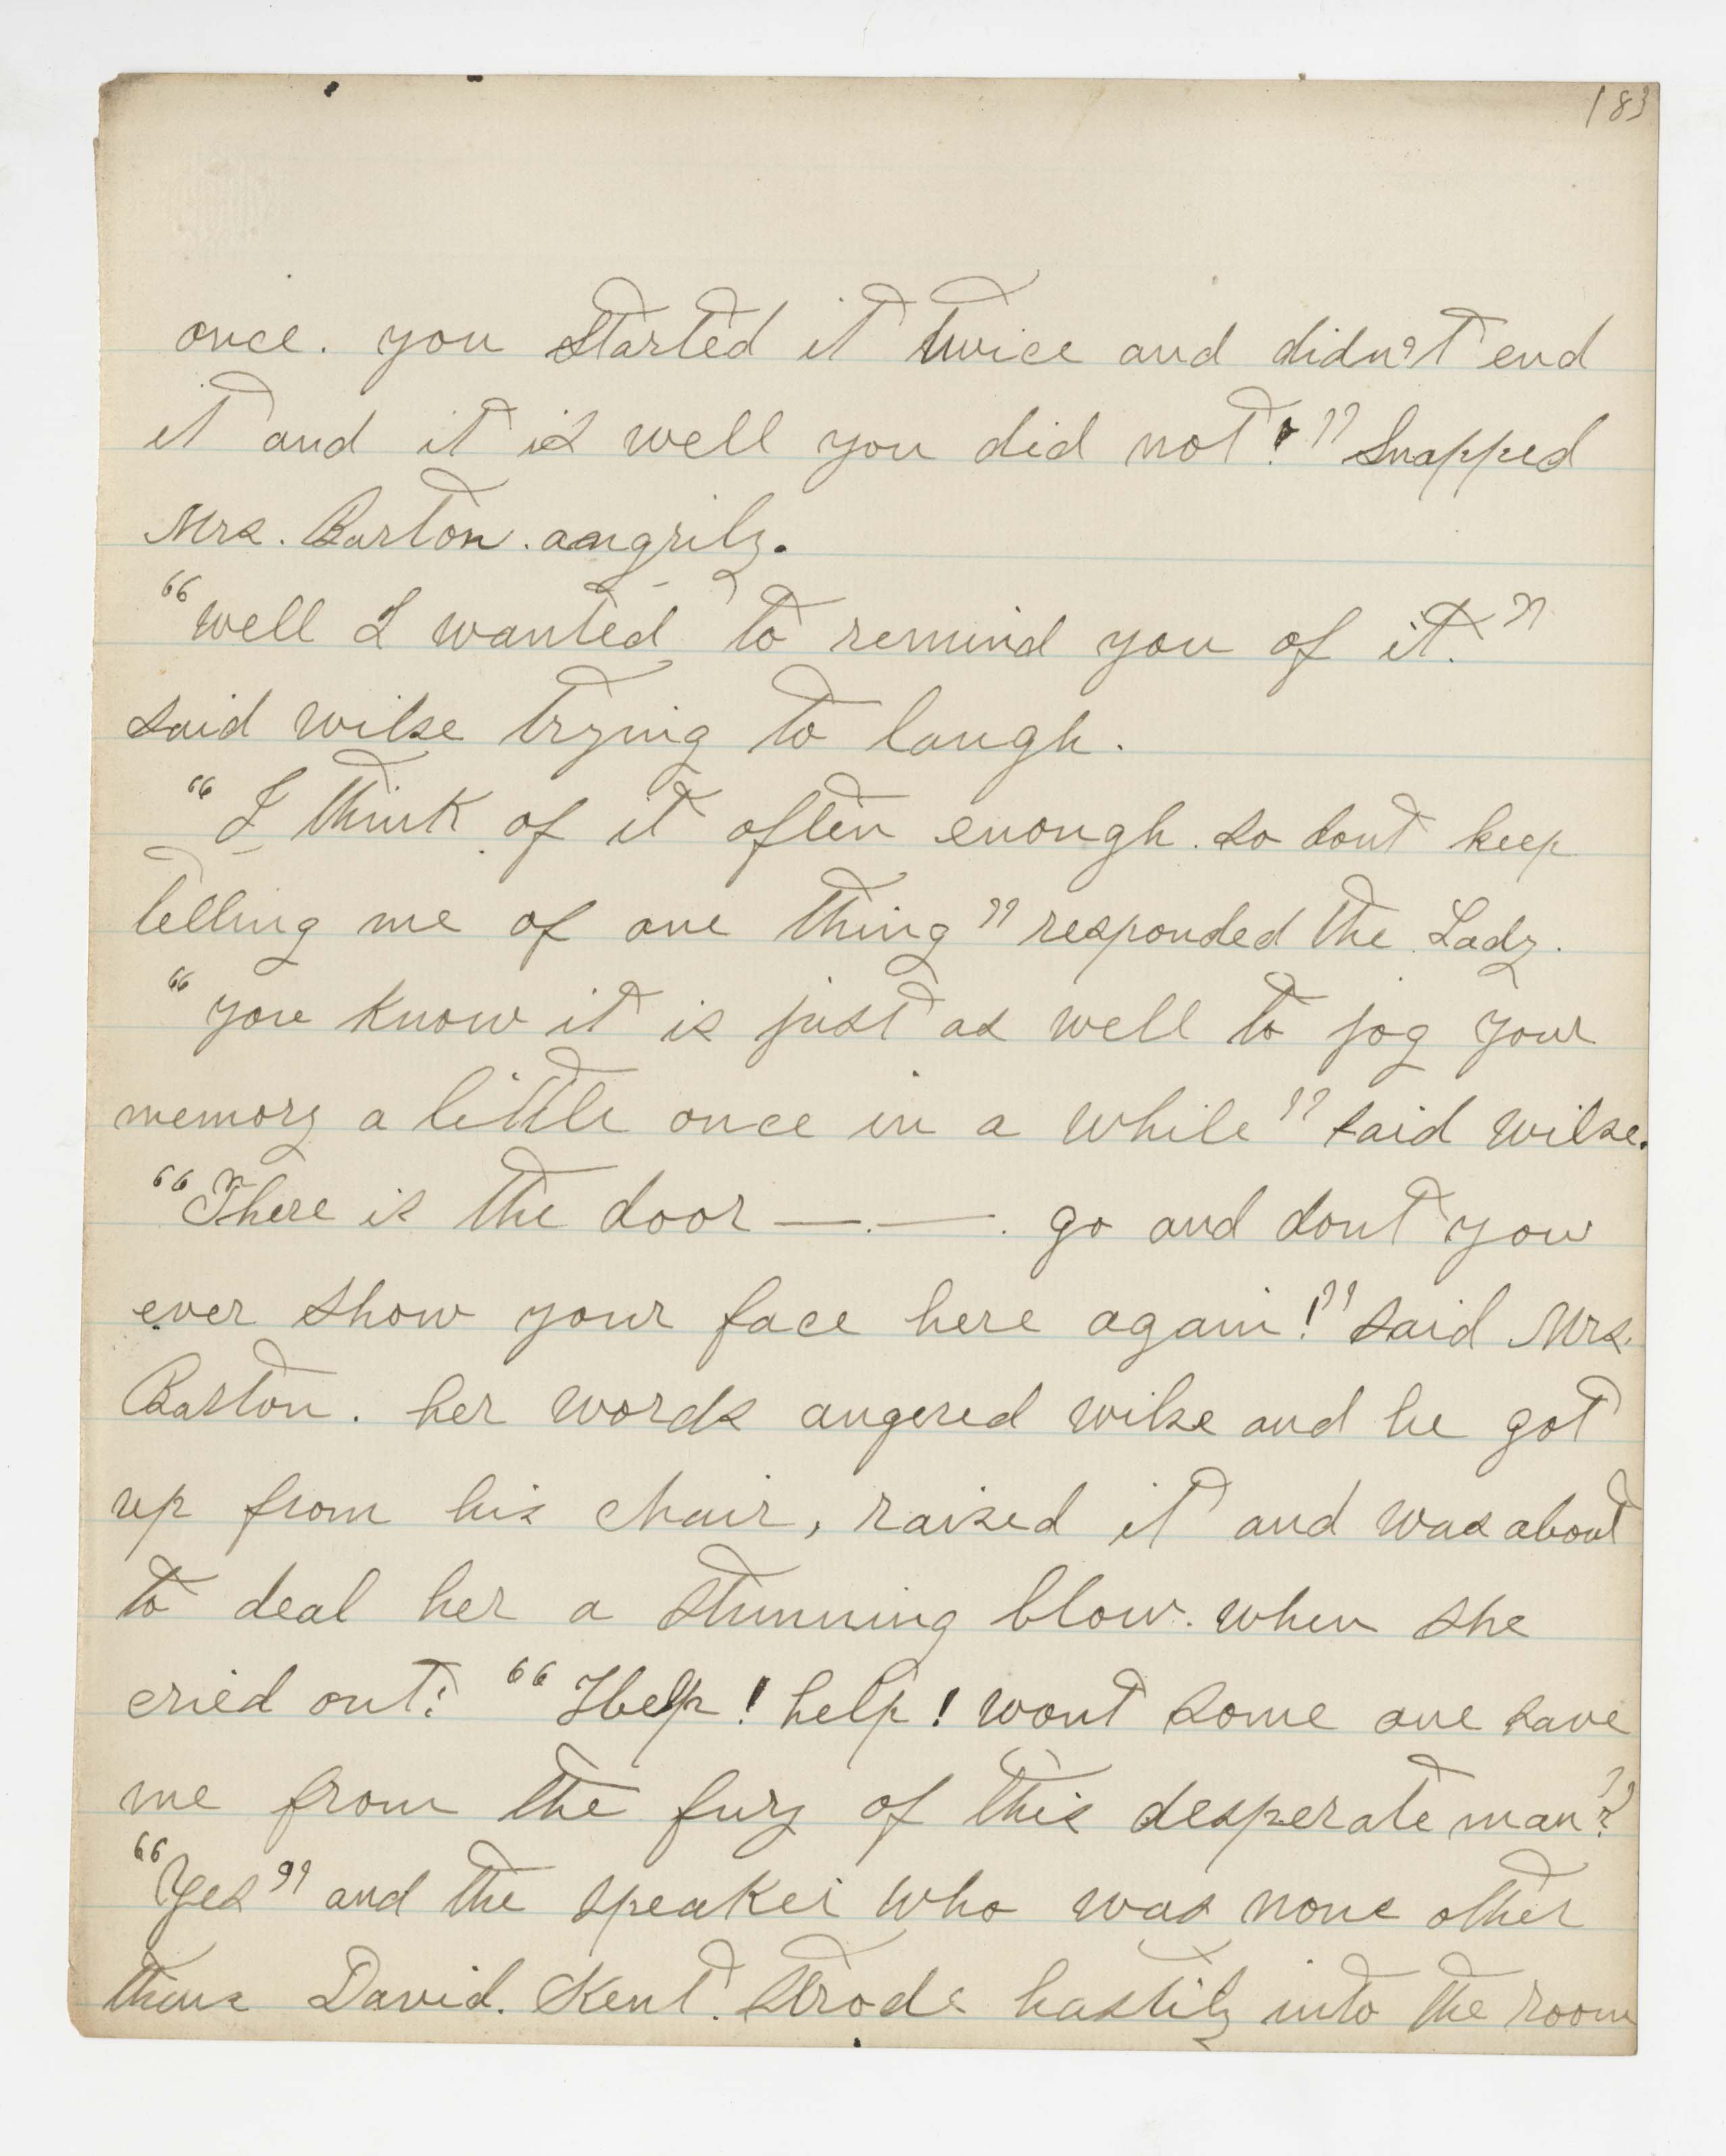 183
once. you started it twice and didn't end
it and it is well you did not!" Snapped
Mrs. Barton. aangrily.
"well I wanted to remind you of it."
said wilse trying to laugh.
"I think of it often enough. so dont keep
telling me of one thing" responded the Lady.
"you know it is just as well to jog your
memory a little once in a while" said wilse.
"There is the door —. —. go and dont you
ever show your face here again!" said Mrs.
Barton. her words angered wilse and he got
up from his chair, raised it and was about
to deal her a stunning blow. when she
cried out: "Help! help! wont some one save
me from the fury of this desperate man?"
"Yes" and the speaker who was none other
than David. Kent. strode hastily into the room